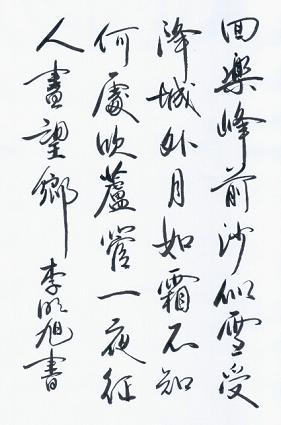 回樂峰前沙似雪受
降城外月如霜不知
何處吹蘆管一夜征
人盡望鄉
李明旭書